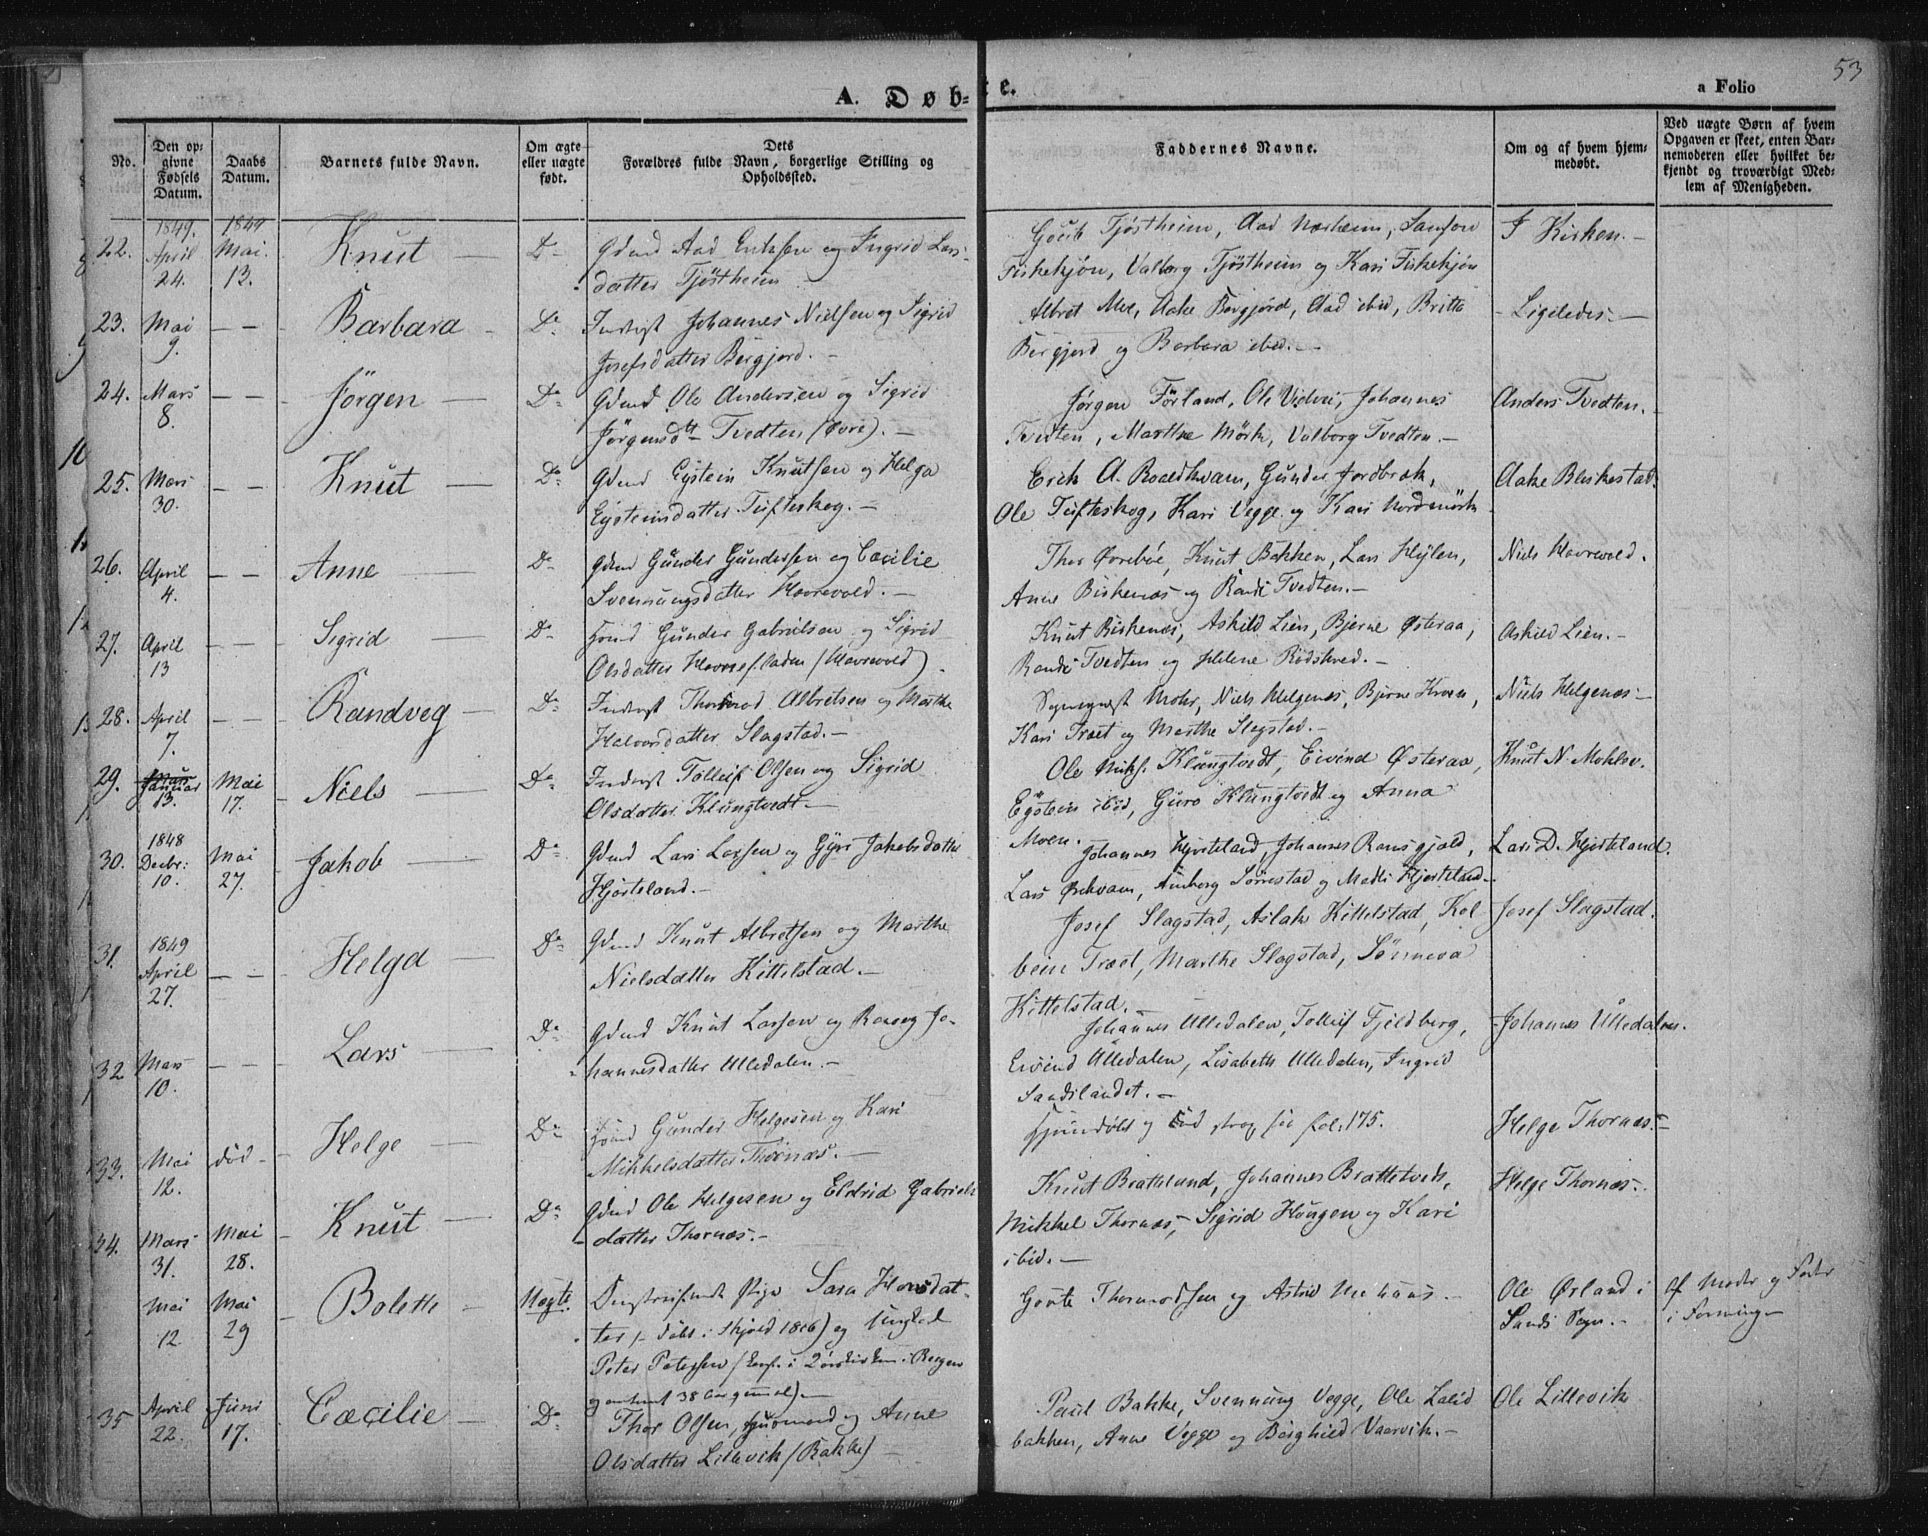 53
A. Døb-
te.
a Folio
No.
Den op-
givne
Fødsels
Datum.
Daabs
Datum.
Barnets fulde Navn.
Om ægte
eller uægte
født.
Dets
Forældres fulde Navn, borgerlige Stilling og
Opholdssted.
Faddernes Navne.
Om og af hvem hjem-
medøbt.
Ved uægte Børn af hvem
Opgaven er skeet, enten Bar-
nemoderen eller hvilket be-
kjendt og troværdigt Med-
lem af Menigheden.
22. 1849. April 24. 1849 Mai 13. Knut Do Gdmd Aad Eriksen og Ingrid Lars-
datter Tjøstheim
Goute Tjøstheim, Aad Nærheim, Samson
Fiskekjøn, Valborg Tjøstheim og Kari Fiskekjøn
I Kirken.
23. Mai 9. Barbara Do Indergst Johannes Nielsen og Sigrid
Josefsdatter Bergjord.
Albret Moe, Aake Bergjord, Aad ibid, Britta
Bergjord og Barbara ibid.
Ligeledes.
24. Mars 8. Jørgen Do Gdmd Ole Andersen og Sigrid
Jørgensdtr Tvedten (øvre).
Jørgen Førland, Ole Vidvei, Johannes
Tvedten, Marthe Mørk, Valborg Tvedten.
Anders Tvedten.
25. Mars 30. Knut Do Gdmd Eystein Knutsen og Helga
Eysteinsdatter Tufteskog.
Erik A. Roaldkvam, Gunder Jordbrek,
Ole Tufteskog, Kari Vegge og Kari Nordmørk
Aake Bleskestad.
26. April 4. Anne Do Gdmd Gunder Gundersen og Cæcilie
Svennungsdatter Havrevold.
Thor Ørebøe, Knut Bakken, Lars Hylen,
Anne Birkenæs og Randi Tvedten.
Niels Havrevold.
27. April 13 Sigrid Do Gunder Gabrielsen og Sigrid
Olsdatter (Havrevold).
Knut Birkenæs, Askild Lien, Bjerne Østeraa,
Randi Tvedten og Helene Rødskred.
Askild Lien.
28. April 7. Randveg Do Indergst Thormod Albretsen og Marthe
Halvorsdatter Slagstad.
Mohr, Niels Helgenæs, Bjerne Kroen,
Kari Træet og Marthe Slagstad.
Niels Helgenæs
29. Januar 13. Mai 17. Niels Do Indergst Tolleif Olsen og Sigrid
Olsdatter Klungtvedt
Ole Niks. Klungtvedt, Eivind Østeraa,
Eystein ibid, Guro Klungtvedt og Anna
Moen.
Knut N. Mehlsv.
30. 1848 Decbr: 10. Mai 27. Jakob Do Gdmd Lars Larsen og Gyri Jakobsdatter
Hjorteland.
Johannes Hjorteland, Johannes Rønsgjold,
Lars Ørekvam, Aamborg Sørrestad og Madli Hjorteland.
Lars D. Hjorteland.
31. 1849 April 27. Helga Do Gdmd Knut Albretsen og Marthe
Nielsdatter Kittelstad.
Josef Slagstad, Aslak Kittelstad, Kol
bein Træet, Marthe Slagstad, Sønneva
Kittelstad.
Josef Slagstad.
32 Mars 10. Lars Do Gdmd Knut Larsen og Ranveg Jo-
hannesdatter Ulledalen.
Johannes Ulledalen, Tolleif Fjeldberg,
Eivind Ulledalen, Lisabeth Ulledalen, Ingrid
Sandslandet.
Johannes Ulledalen.
33. Mai 12. død Helge Do Gunder Helgesen og Kari
Mikkelsdatter Thornæs.
Hjemdøbt og død strax see fol. 175.
Helge Thornæs.
34. Mars 31. Mai 28. Knut Do Gdmd Ole Helgesen og Eldrid Gabriels
datter Thornæs.
Knut Bratteland, Johannes Brattetveit,
Mikkel Thornæs, Sigrid Haugen og Kari
ibid.
Helge Thornæs.
Mai 12. Mai 29 Bolette Uægte. Pige Sara Hansdat-
ter (døbt i Skjold 1816) og Ungkarl
Peter Petersen (conf. i Domkirken i Bergen
omtrent 38 Aar gammel).
Goute Thormodsen og Astrid Nehaas.
Ole Ørland i
Sands Sogn.
Af Moder og Fader
i Forening
35 April 22. Juni 17. Cæcilie Do Thor Olsen, og Anne
Olsdatter Lillevik (Bakke)
Paul Bakke, Svennung Vegge, Ole Lalid
bakken, Anne Vegge og Borghild Vaarvik.
Ole Lillevik